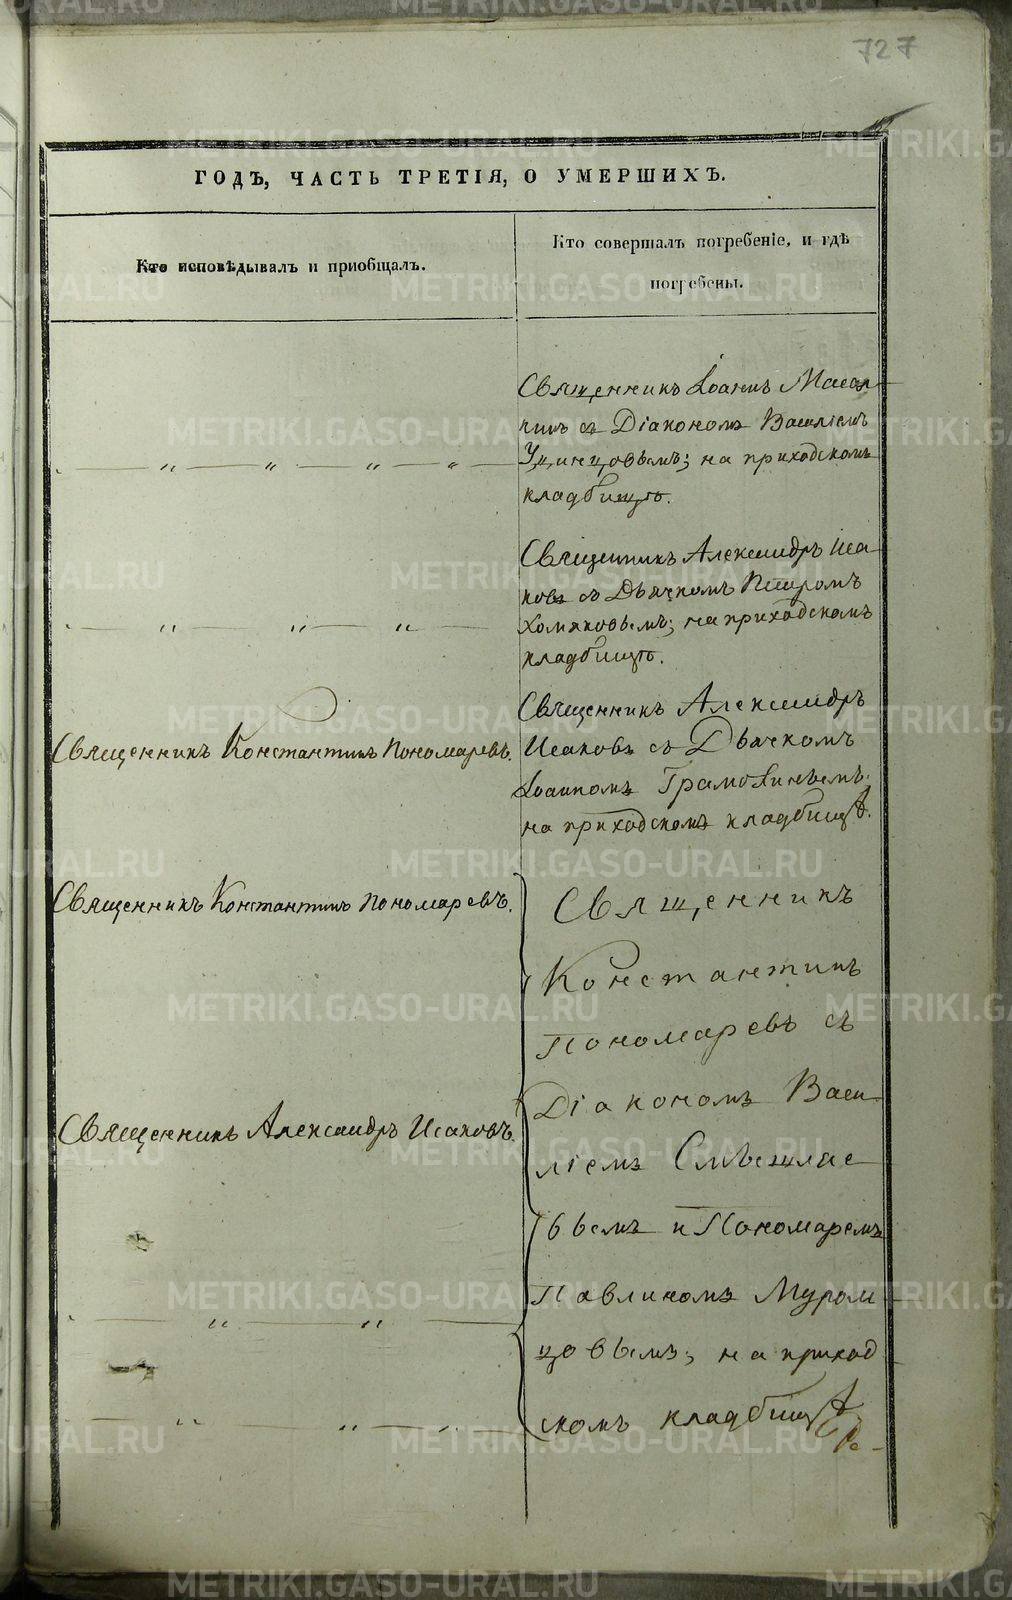 727
ГОДЪ, ЧАСТЬ ТРЕТІЯ, О УМЕРШИХЪ.
Кто исповѣдывалъ и приобщалъ.
Кто совершалъ погребеніе, и гдѣ
погребены.
Священникъ Іоаннъ
съ Діакономъ Василіемъ
Удинцовымъ; на приходскомъ
кладбищѣ.
Священникъ Александръ Иса-
ковъ съ Дьячкомъ Петромъ
Хомяковымъ; на приходскомъ
кладбищѣ.
Священникъ Константинъ Пономаревъ.
Священникъ Александръ
Исаковъ съ Дьячкомъ
Іоанномъ
на приходскомъ кладбищѣ.
Священникъ Константинъ Пономаревъ.
Священникъ Александръ Исаковъ.
Священникъ
Константинъ
Пономаревъ съ
Діакономъ Васи-
ліемъ
вымъ и Пономаремъ
Павлиномъ Муром-
цовымъ; на приход
скомъ кладбищѣ
METRIKI.GASO-URAL.RU